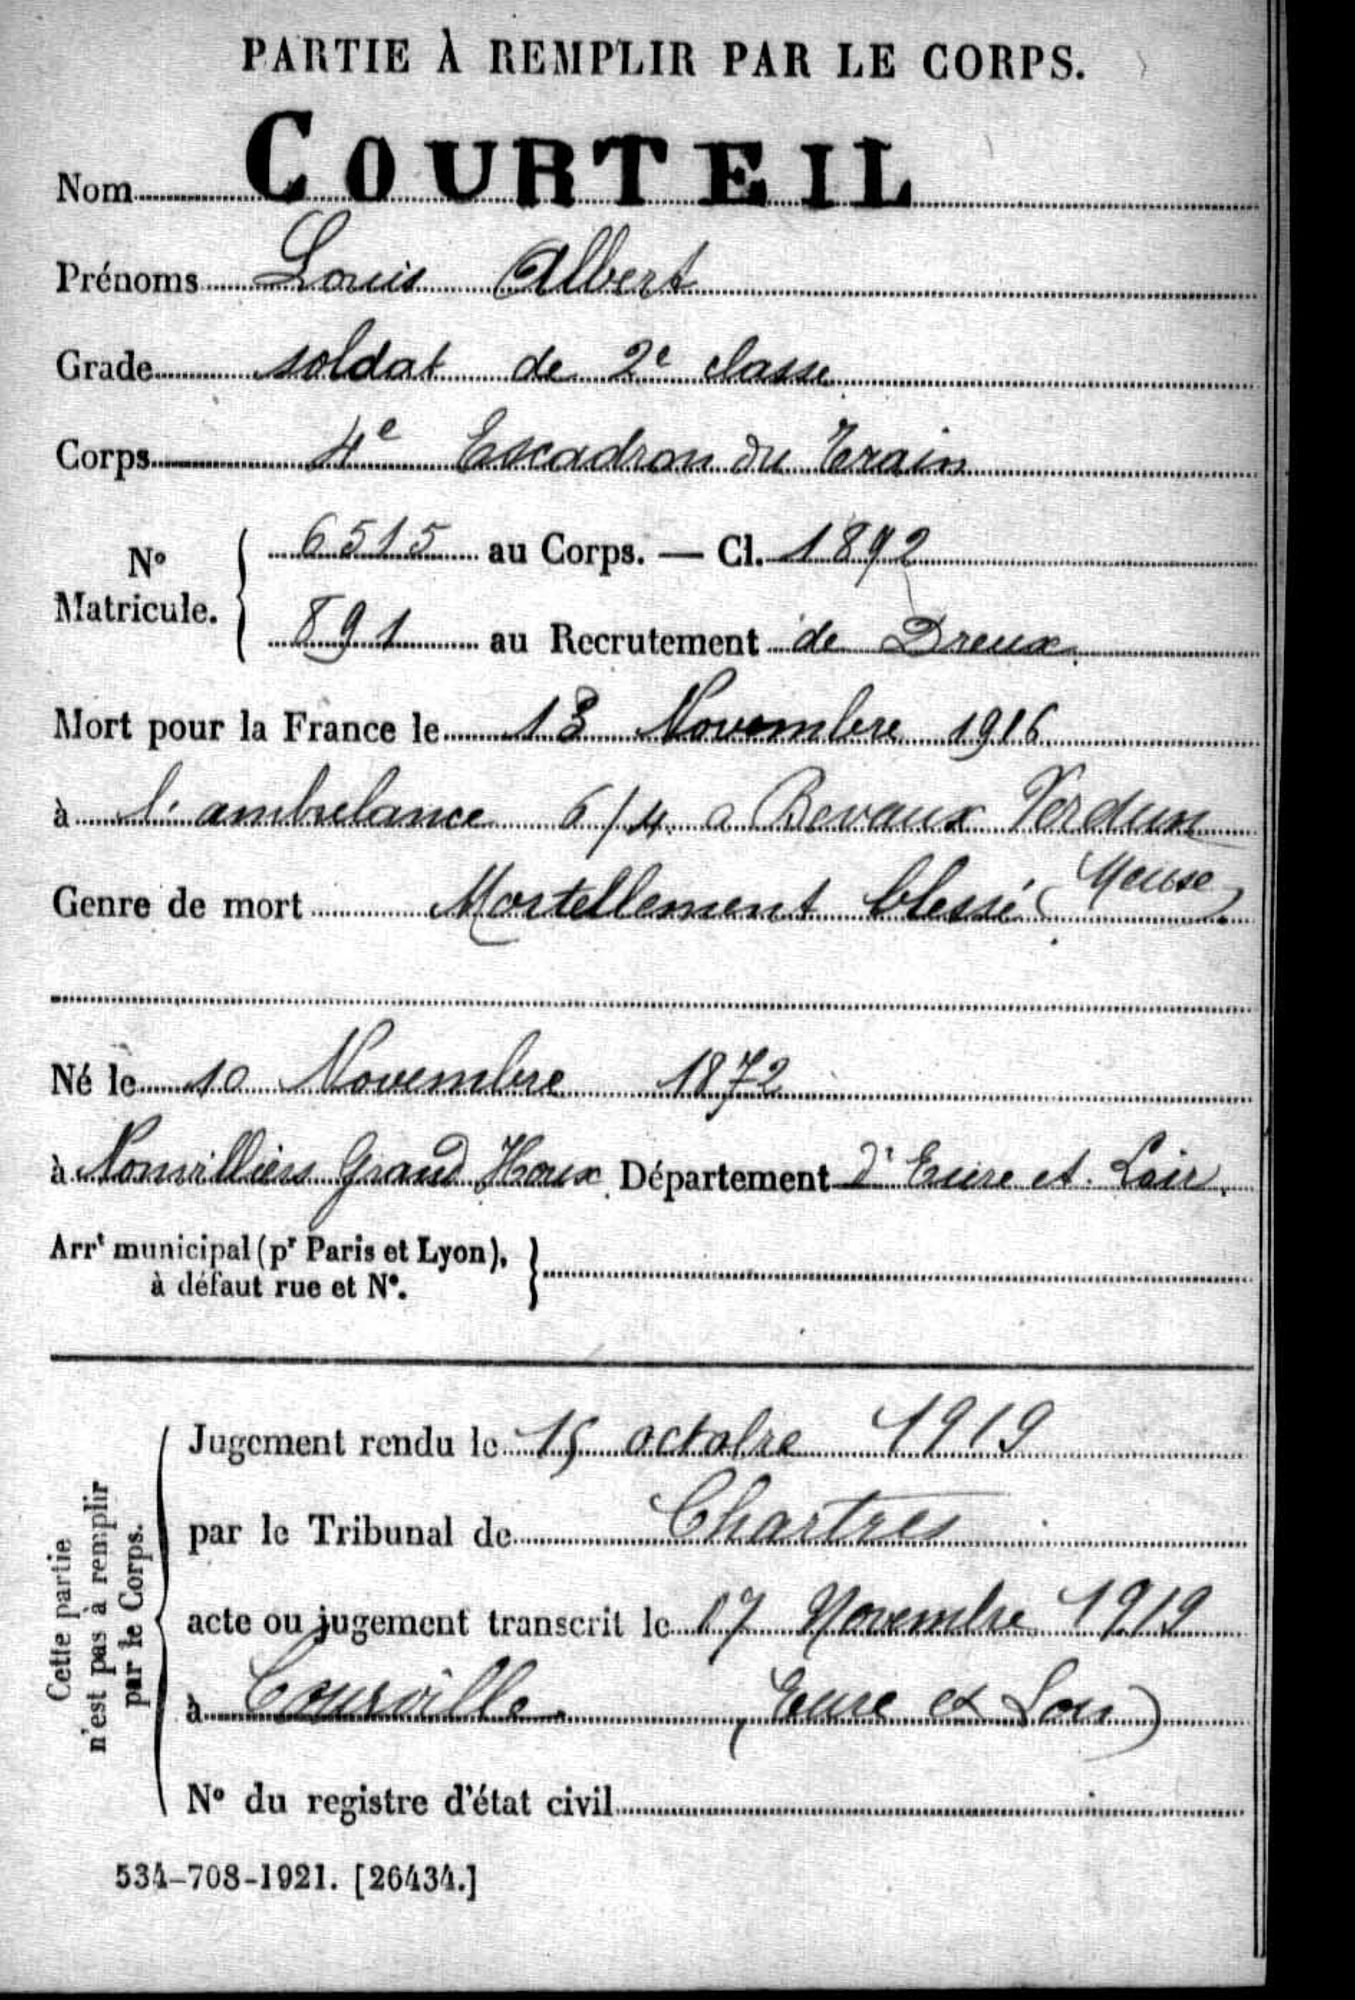 PARTIE À REMPLIR PAR LE CORPS.
Nom COURTEIL
Prénoms Louis Albert
Grade soldat de 2e classe
Corps 4e Escadron du Train
No Matricule. { 6515 au Corps. — Cl. 1892
891 au Recrutement de Dreux.
Mort pour la France le 13 Novembre 1916
à l'ambulance 6/4 a Bevaux Verdun
Genre de mort Mortellement blessé (Meuse)
Né le 10 Novembre 1872
à Nonvilliers Grand Houx Département d'Eure et Loir.
Arrt municipal (pr Paris et Lyon), }
à défaut rue et No.
Cette partie n'est pas à remplir par le Corps.
Jugement rendu le 15 octobre 1919
par le Tribunal de Chartres
acte ou jugement transcrit le 17 Novembre 1919
à Courville (Eure et Loir)
No du registre d'état civil
534-708-1921. [26434.]